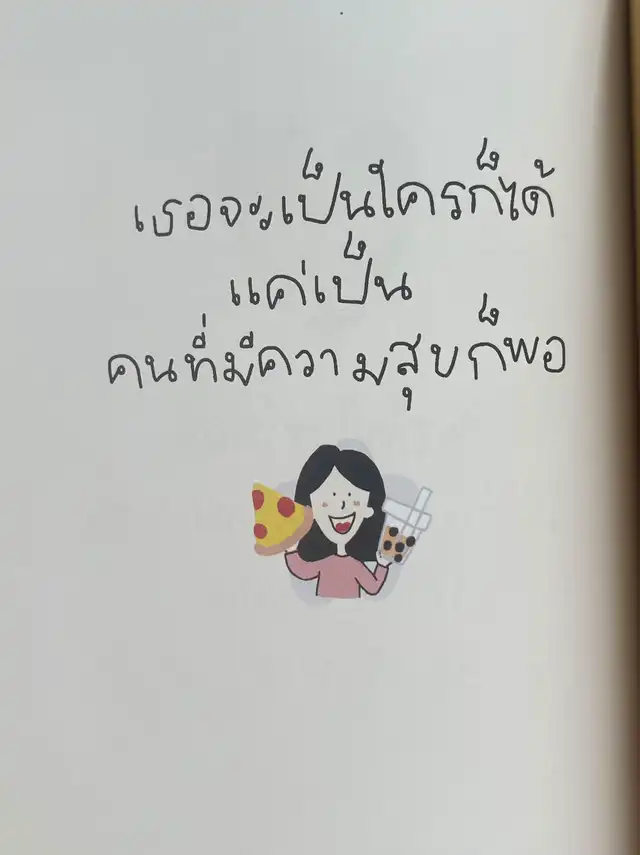 เธอจะเป็นใครก็ได้
แค่เป็น
คนที่มีความสุขก็พอ